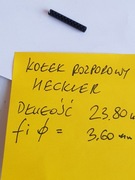 KOŁEK ROZPOROWY
HECKLER
DŁUGOŚĆ 23.80
fi ϕ = 3.60 mm